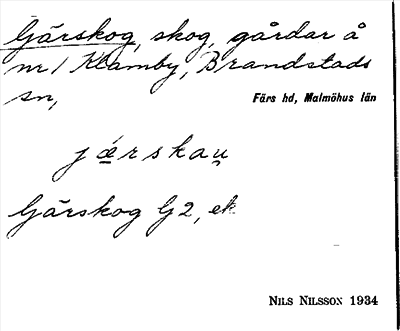 Gärskog, skog, gårdar å
nr 1 Klamby, Brandstads
sn,
Färs hd, Malmöhus län
jǽrskau̯
Gärskog G2, ek
NILS NILSSON 1934